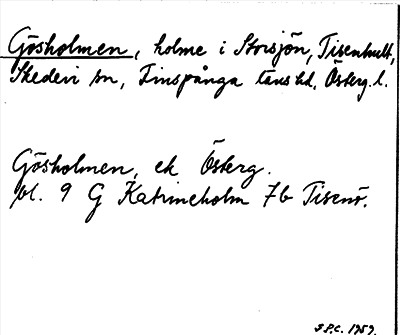 Gösholmen, holme i Storsjön, Tisenhult,
Skedevi sn, Finspånga läns hd, Österg. l.
Gösholmen, ek Österg.
bl. 9 G Katrineholm 7b Tisenö.
S.P.C. 1959.